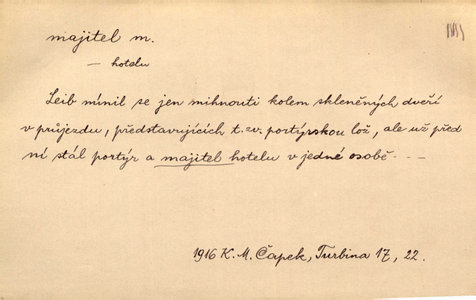 majitel m.
— hotelu
Leib mínil se jen mihnouti kolem skleněných dveří
v průjezdu, představujících t. zv. portýrskou lož, ale už před
ní stál portýr a majitel hotelu v jedné osobě - - -
1916 K. M. Čapek, Turbina 17, 22.